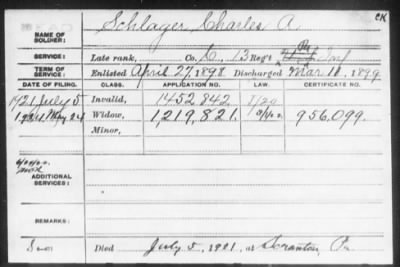 CK
NAME OF SOLDIER: Schlager, Charles A.
SERVICE: Late rank, Co. C, 13 Reg't Pa Inf
TERM OF SERVICE: Enlisted April 27, 1898 Discharged Mar 11, 1899
DATE OF FILING. CLASS. APPLICATION NO. LAW. CERTIFICATE NO.
1921 July 5 Invalid, 1452842
1924 May 24 Widow, 1,219,821. 956,099.
Minor,
ADDITIONAL SERVICES:
REMARKS:
Died July 5, 1921, at Scranton, Pa.